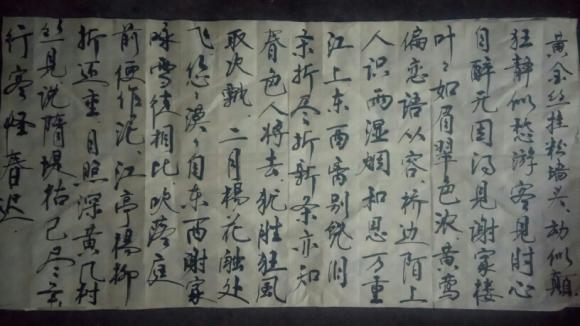 黄金丝挂粉墙头、动似颠
狂静似愁游客见时心
自醉无因得见谢家楼
叶々如眉翠色浓黄莺
偏恋语从容、桥边陌上
人识雨湿烟和思万重
江上东西离别饶旧
条折尽折新条亦知
春色人将去犹胜狂风
取次飘、二月杨花触处
飞悠漠々自东西谢家
咏雪徒相比、吹落庭
前便作泥、江亭杨柳
折还垂、月照深黄几树
丝见说隋堤枯已尽、年
行客怪春迟